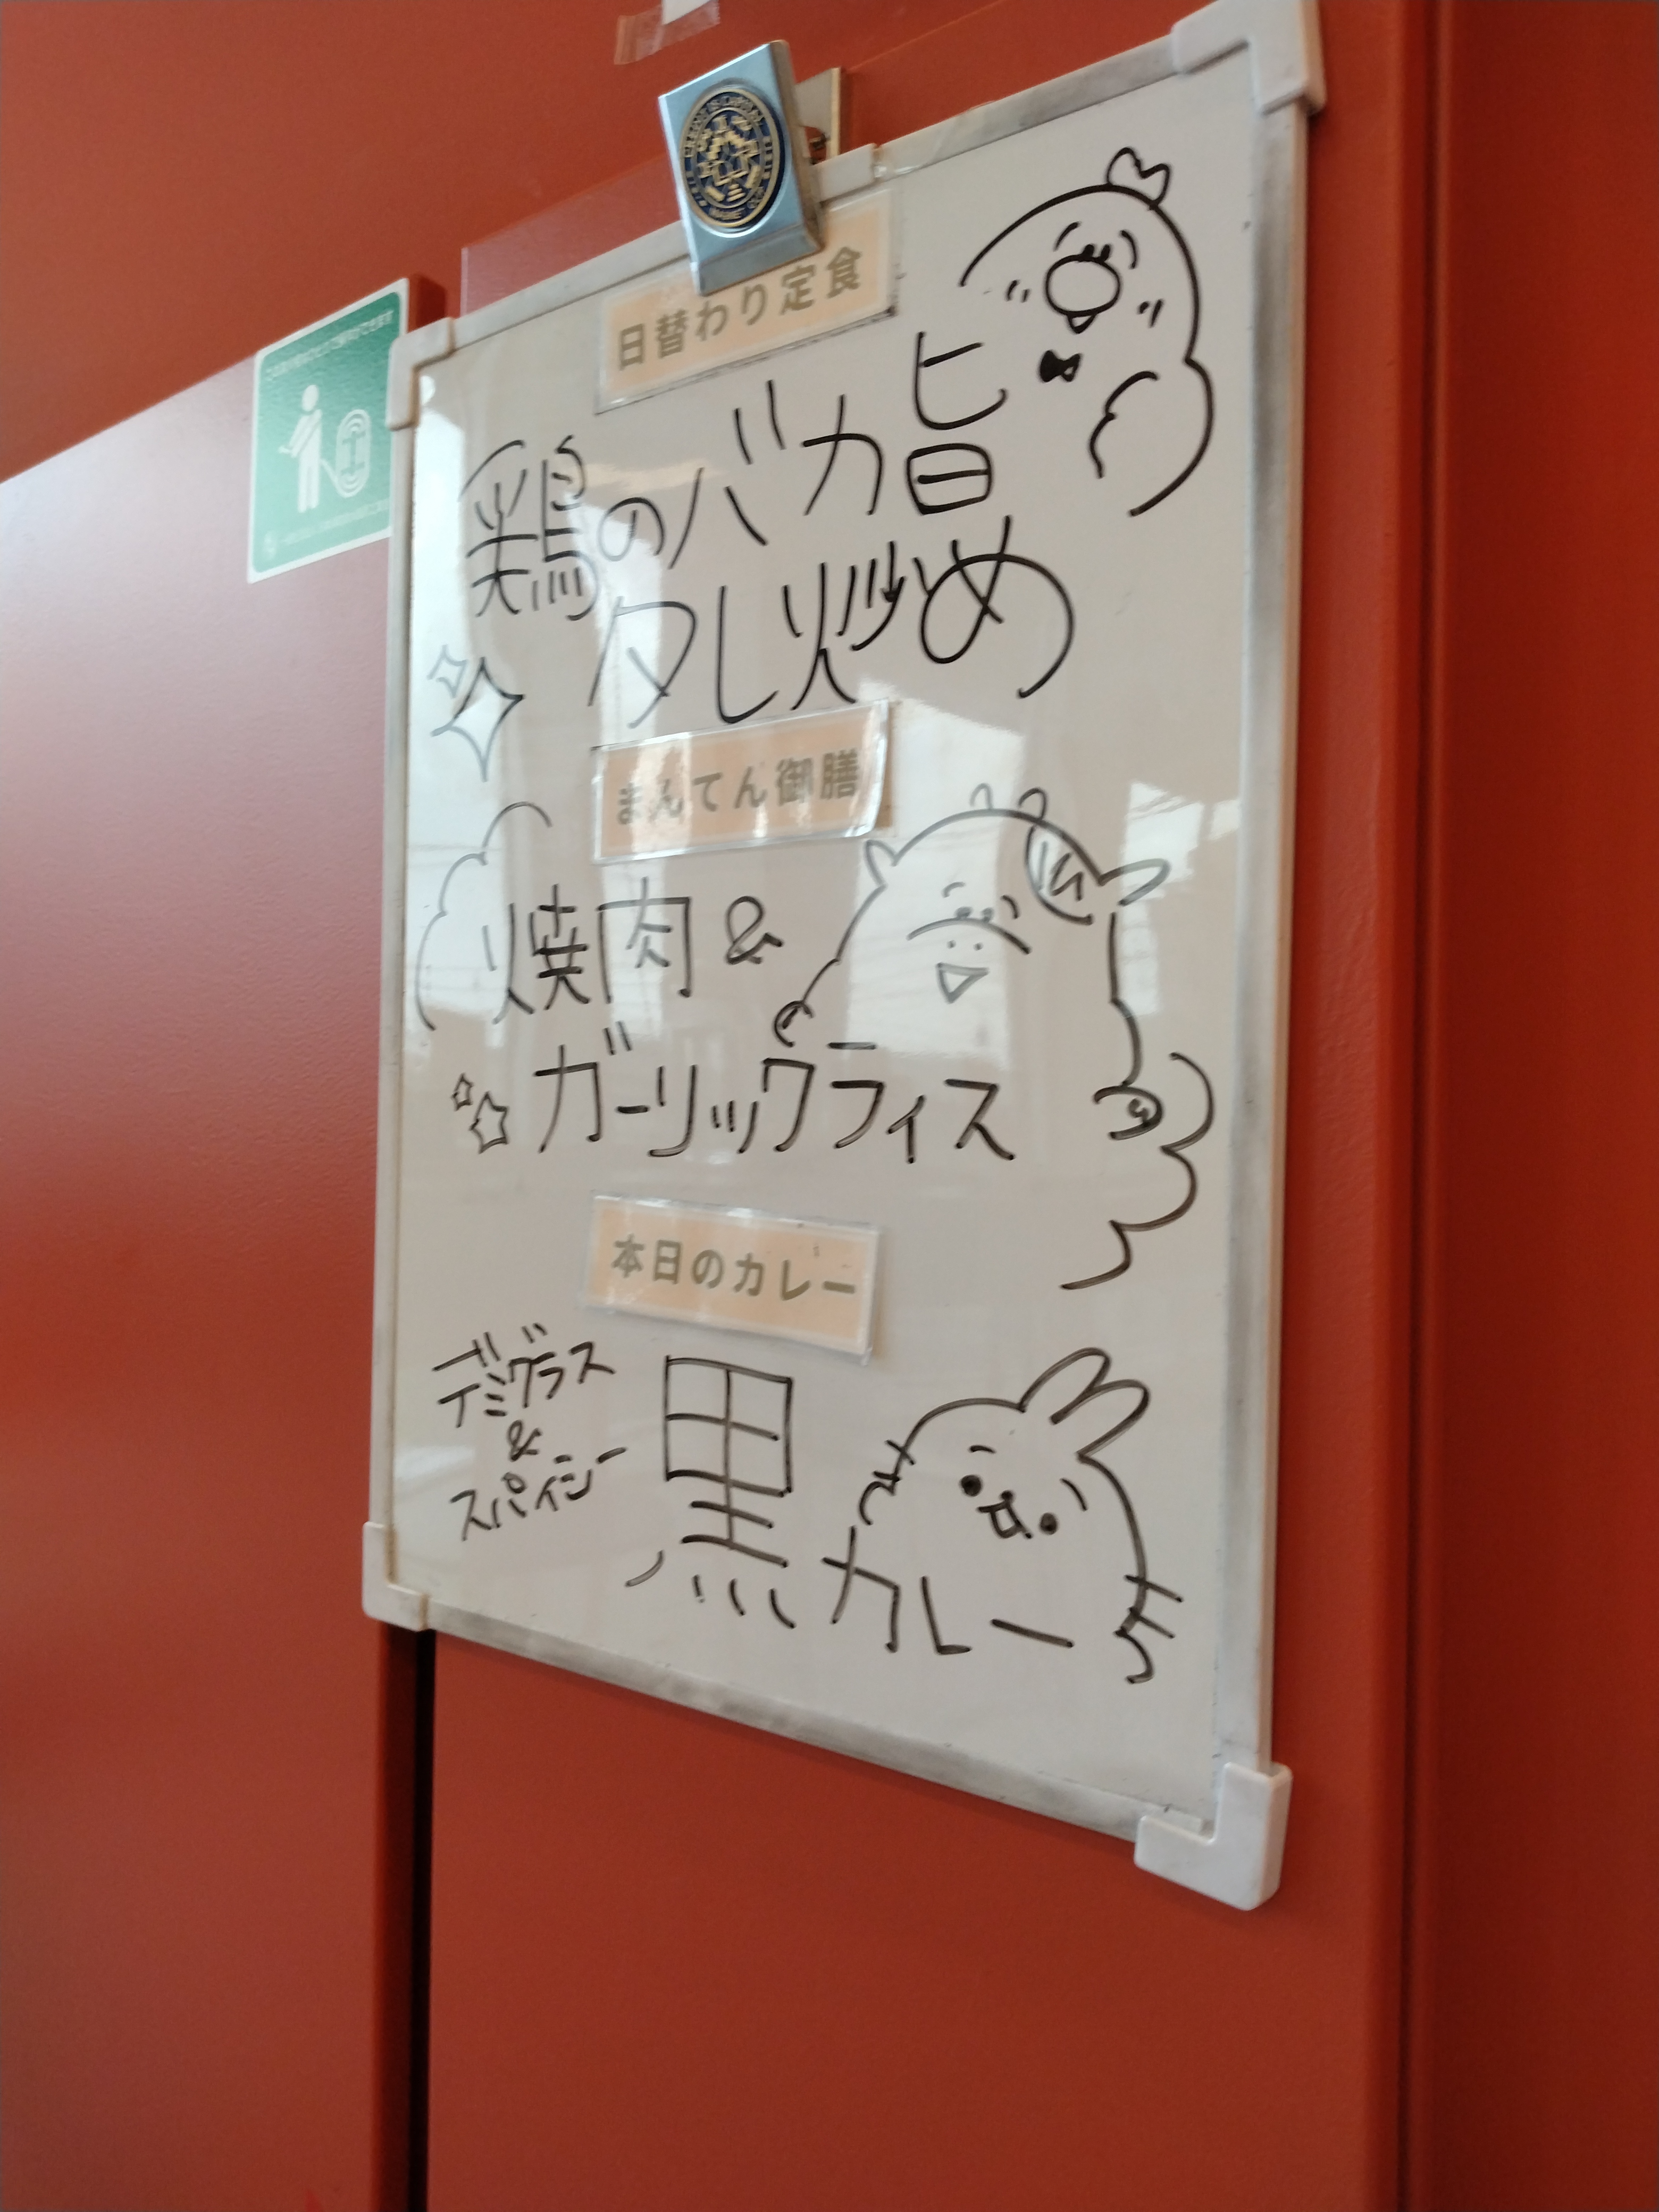 日替わり定食
鶏のバカ旨
タレ炒め
まんてん御膳
焼肉&
ガーリックライス
本日のカレー
デミグラス
&
スパイシー
黒カレー